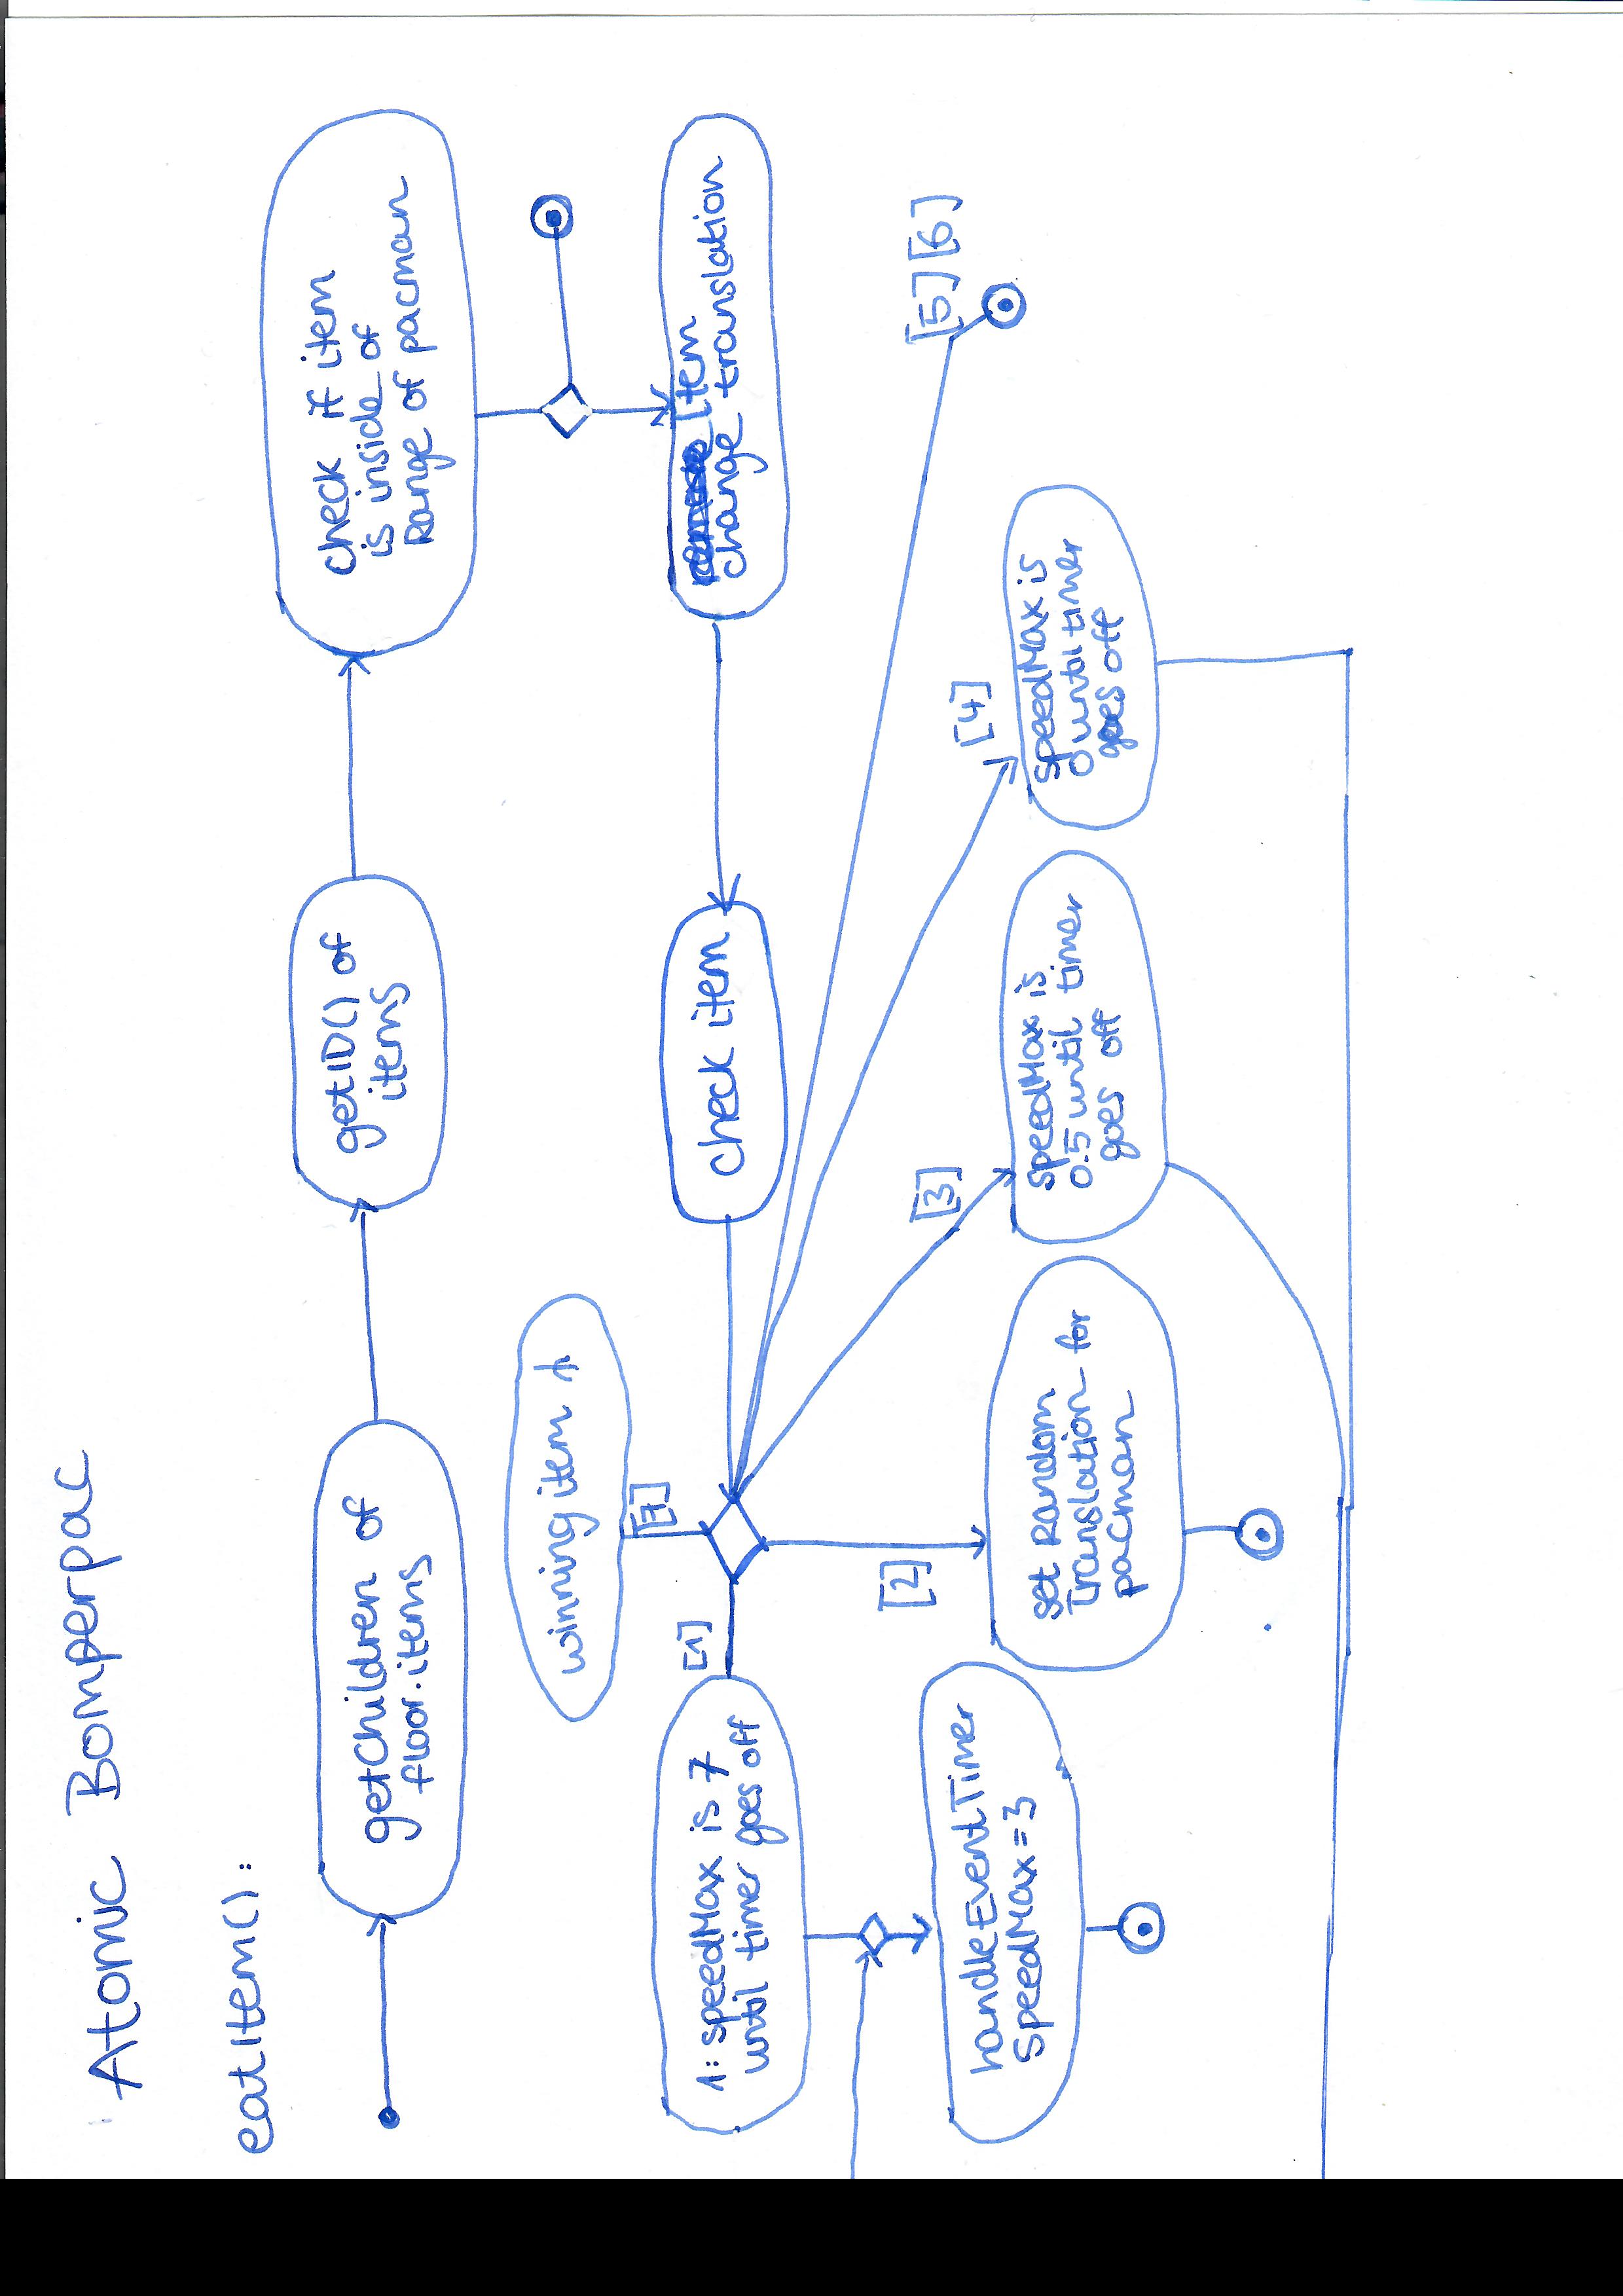 Atomic Bomperpac
eatItem():
getChildren of
floor.items
getID() of
items
check if item
is inside of
Range of pacman
Item
change translation
check item
winning item
[7]
[1]
1: speedMax is 7
until timer goes off
handleEventTimer
SpeedMax=3
[2]
set Random
Translation for
pacman
[3]
SpeedMax is
0.5 until timer
goes off
[4]
SpeedMax is
0 until timer
goes off
[5] [6]